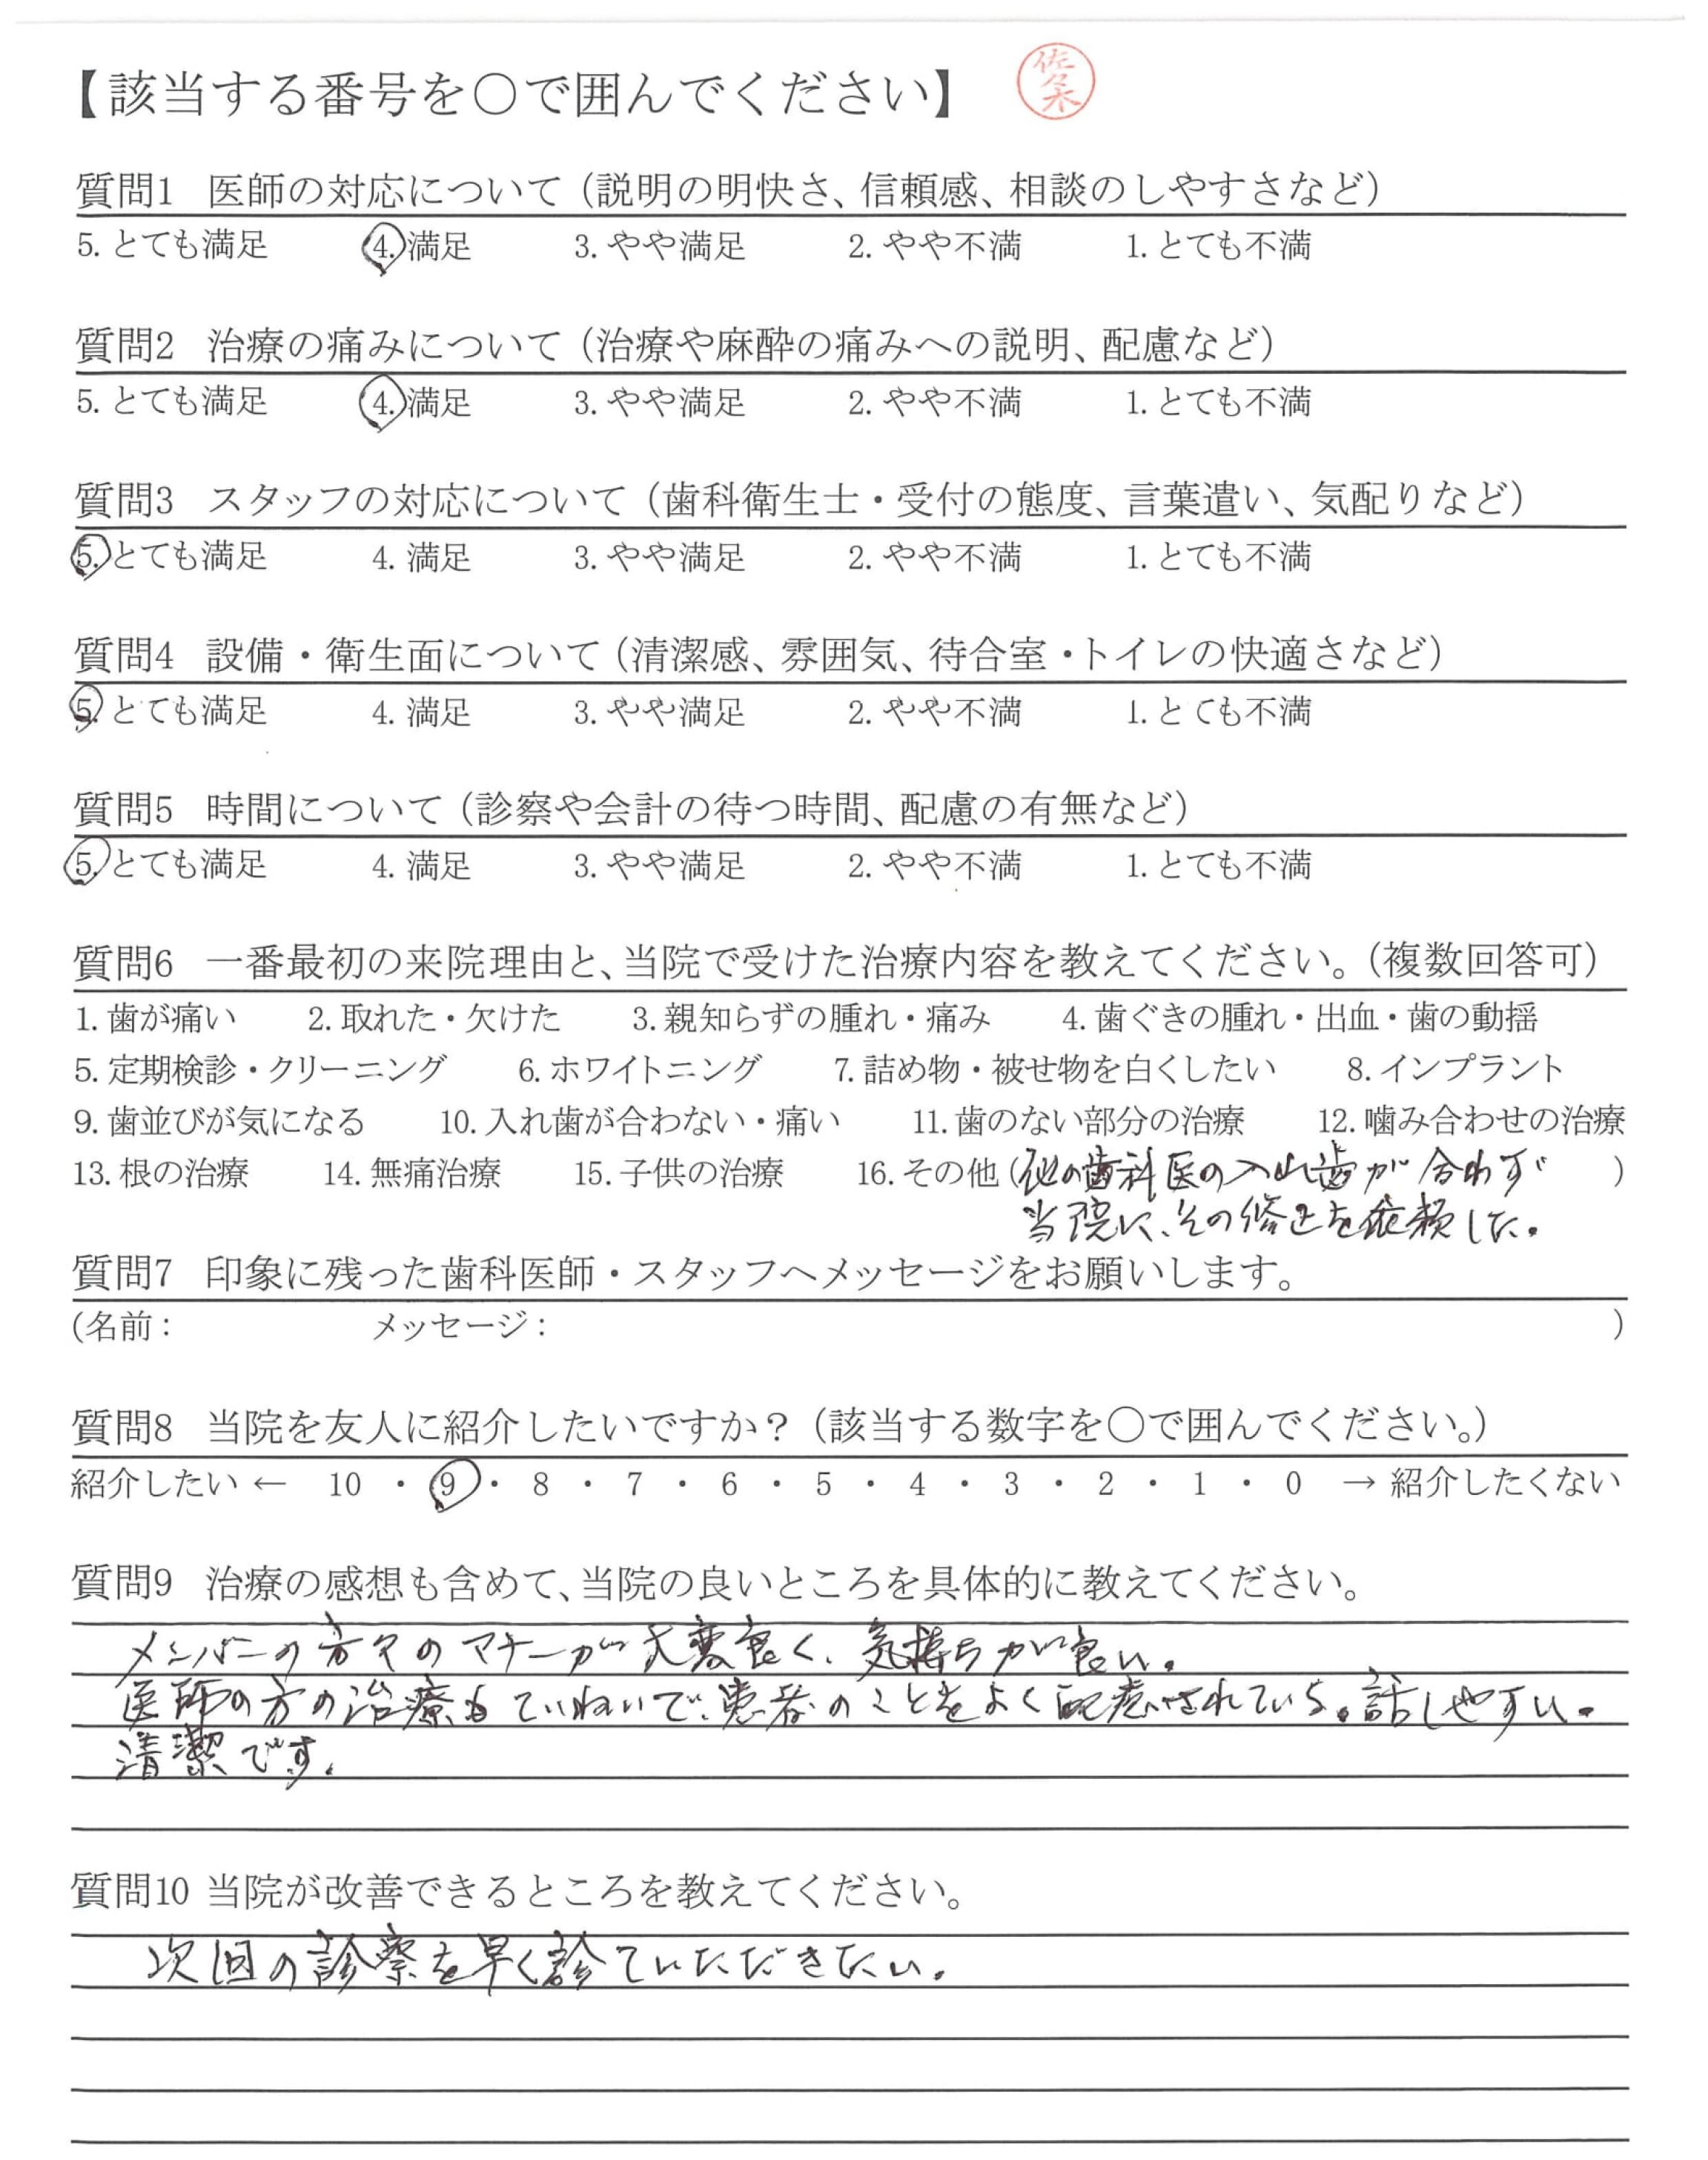 【該当する番号を○で囲んでください】 佐々木
質問1 医師の対応について（説明の明快さ、信頼感、相談のしやすさなど）
5. とても満足 4. 満足 3. やや満足 2. やや不満 1. とても不満
質問2 治療の痛みについて（治療や麻酔の痛みへの説明、配慮など）
5. とても満足 4. 満足 3. やや満足 2. やや不満 1. とても不満
質問3 スタッフの対応について（歯科衛生士・受付の態度、言葉遣い、気配りなど）
5. とても満足 4. 満足 3. やや満足 2. やや不満 1. とても不満
質問4 設備・衛生面について（清潔感、雰囲気、待合室・トイレの快適さなど）
5. とても満足 4. 満足 3. やや満足 2. やや不満 1. とても不満
質問5 時間について（診察や会計の待つ時間、配慮の有無など）
5. とても満足 4. 満足 3. やや満足 2. やや不満 1. とても不満
質問6 一番最初の来院理由と、当院で受けた治療内容を教えてください。（複数回答可）
1. 歯が痛い 2. 取れた・欠けた 3. 親知らずの腫れ・痛み 4. 歯ぐきの腫れ・出血・歯の動揺
5. 定期検診・クリーニング 6. ホワイトニング 7. 詰め物・被せ物を白くしたい 8. インプラント
9. 歯並びが気になる 10. 入れ歯が合わない・痛い 11. 歯のない部分の治療 12. 噛み合わせの治療
13. 根の治療 14. 無痛治療 15. 子供の治療 16. その他（他の歯科医の入れ歯が合わず ）
当院に、その修正を依頼した。
質問7 印象に残った歯科医師・スタッフへメッセージをお願いします。
（名前： メッセージ： ）
質問8 当院を友人に紹介したいですか？（該当する数字を○で囲んでください。）
紹介したい ← 10 ・ 9 ・ 8 ・ 7 ・ 6 ・ 5 ・ 4 ・ 3 ・ 2 ・ 1 ・ 0 → 紹介したくない
質問9 治療の感想も含めて、当院の良いところを具体的に教えてください。
メンバーの方々のマナーが大変良く、気持ちが良い。
医師の方の治療もていねいで、患者のことをよく配慮されている。話しやすい。
清潔です。
質問10 当院が改善できるところを教えてください。
次回の診察を早く診ていただきたい。